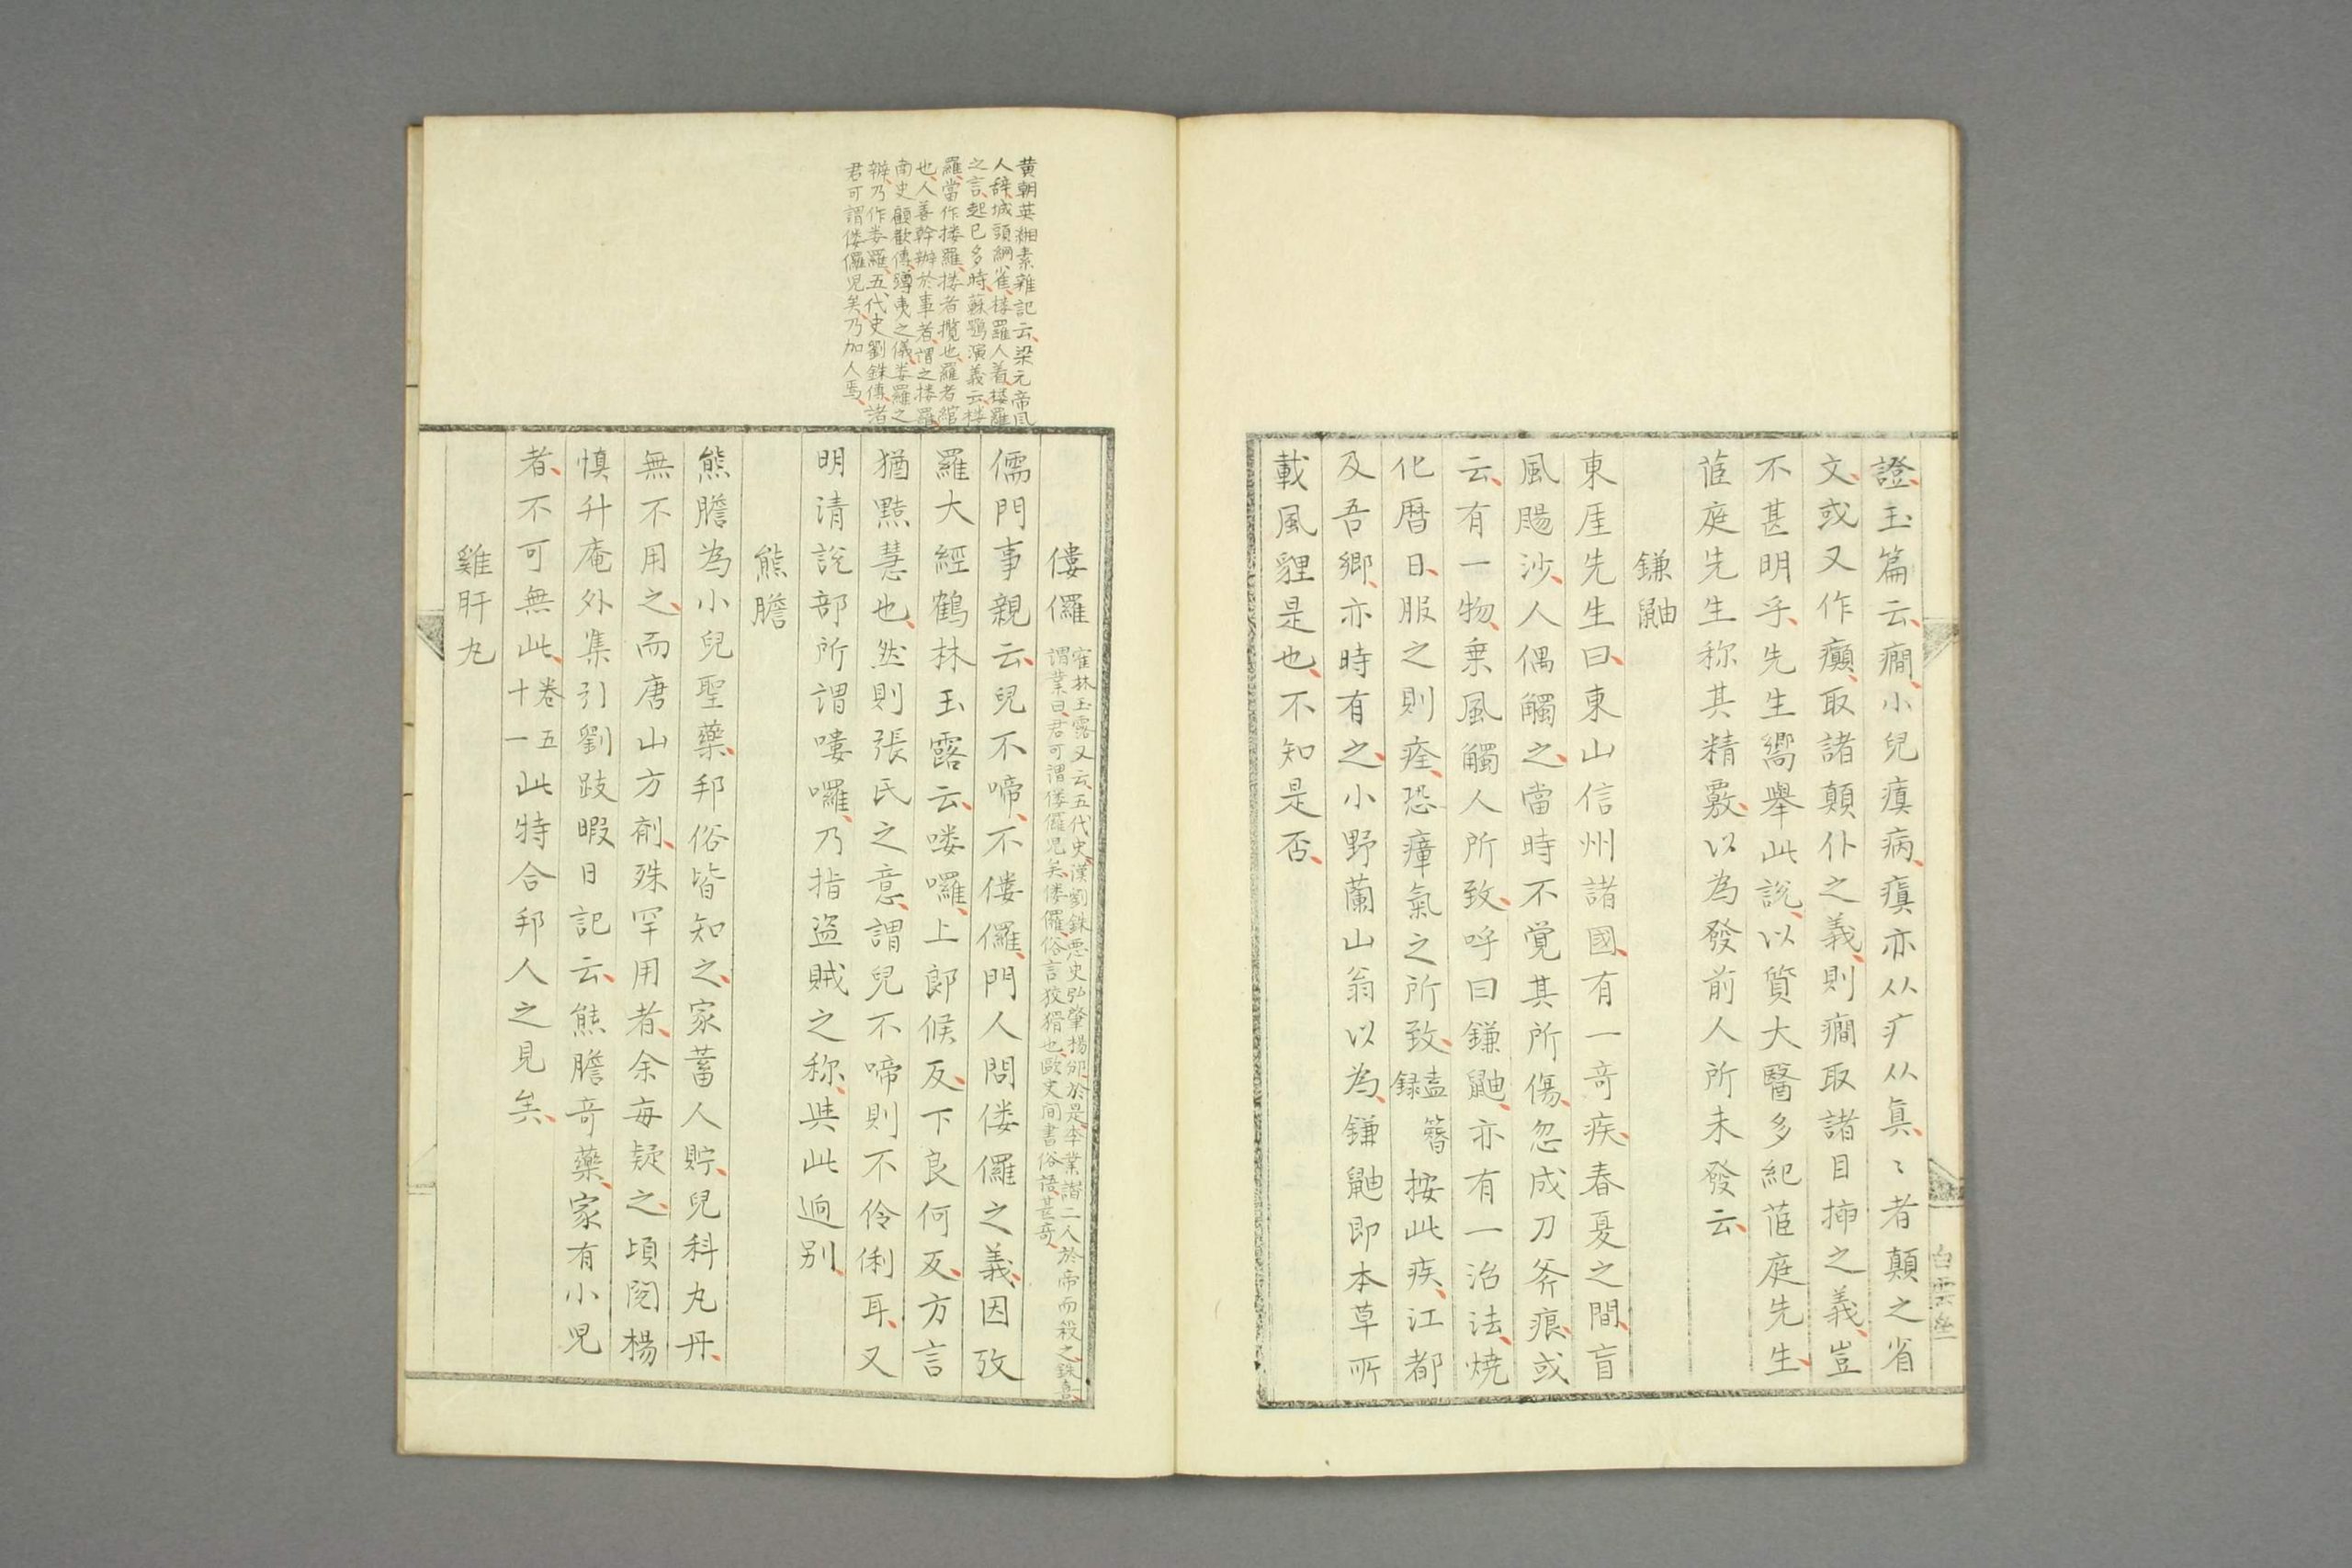 證玉篇云癇小兒瘨病瘨亦从疒从真〻者顛之省
文或又作癲取諸顛仆之義則癇取諸目㨮之義豈
不甚明乎先生嚮舉此說以質大醫多紀茝庭先生
茝庭先生称其精覈以為發前人所未發云
鎌鼬
東厓先生曰東山信州諸國有一奇疾春夏之間盲
風颺沙人偶觸之當時不覚其所傷忽成刀斧痕或
云有一物乗風觸人所致呼曰鎌鼬亦有一治法焼
化暦日服之則痊恐瘴氣之所致盍簪録按此疾江都
及吾鄉亦時有之小野蘭山翁以為鎌鼬即本草所
載風貍是也不知是否
白雲
黄朝英緗素雜記云梁元帝風
人辞城頭網雀樓羅人着樓羅
之言起已多時蘇鶚演義云樓
羅當作摟羅摟者攬也羅者綰
也人善幹辦於事者謂之摟羅
南史顧歡傳蹲夷之儀婁羅之
辯乃作婁羅五代史劉銖傳諸
君可謂僂儸兒矣乃加人焉
僂儸
寉林玉露又云五代史漢劉銖悪史弘肇楊邠於是李業譖二人於帝而殺之銖喜
謂業曰君可謂僂儸児矣僂儸俗言狡猾也歐史間書俗語甚奇
儒門事親云兒不啼不僂儸門人問僂儸之義因攷
羅大經鶴林玉露云嘍囉上郎候反下良何反方言
猶黠慧也然則張氏之意謂兒不啼則不伶俐耳又
明清說部所謂嘍囉乃指盜賊之称與此逈别
熊膽
熊膽為小兒聖藥邦俗皆知之家蓄人貯兒科丸丹
無不用之而唐山方剤殊罕用者余每疑之頃閲楊
慎升庵外集引劉跂暇日記云熊膽奇藥家有小児
者不可無此卷五十一此特合邦人之見矣
雞肝丸